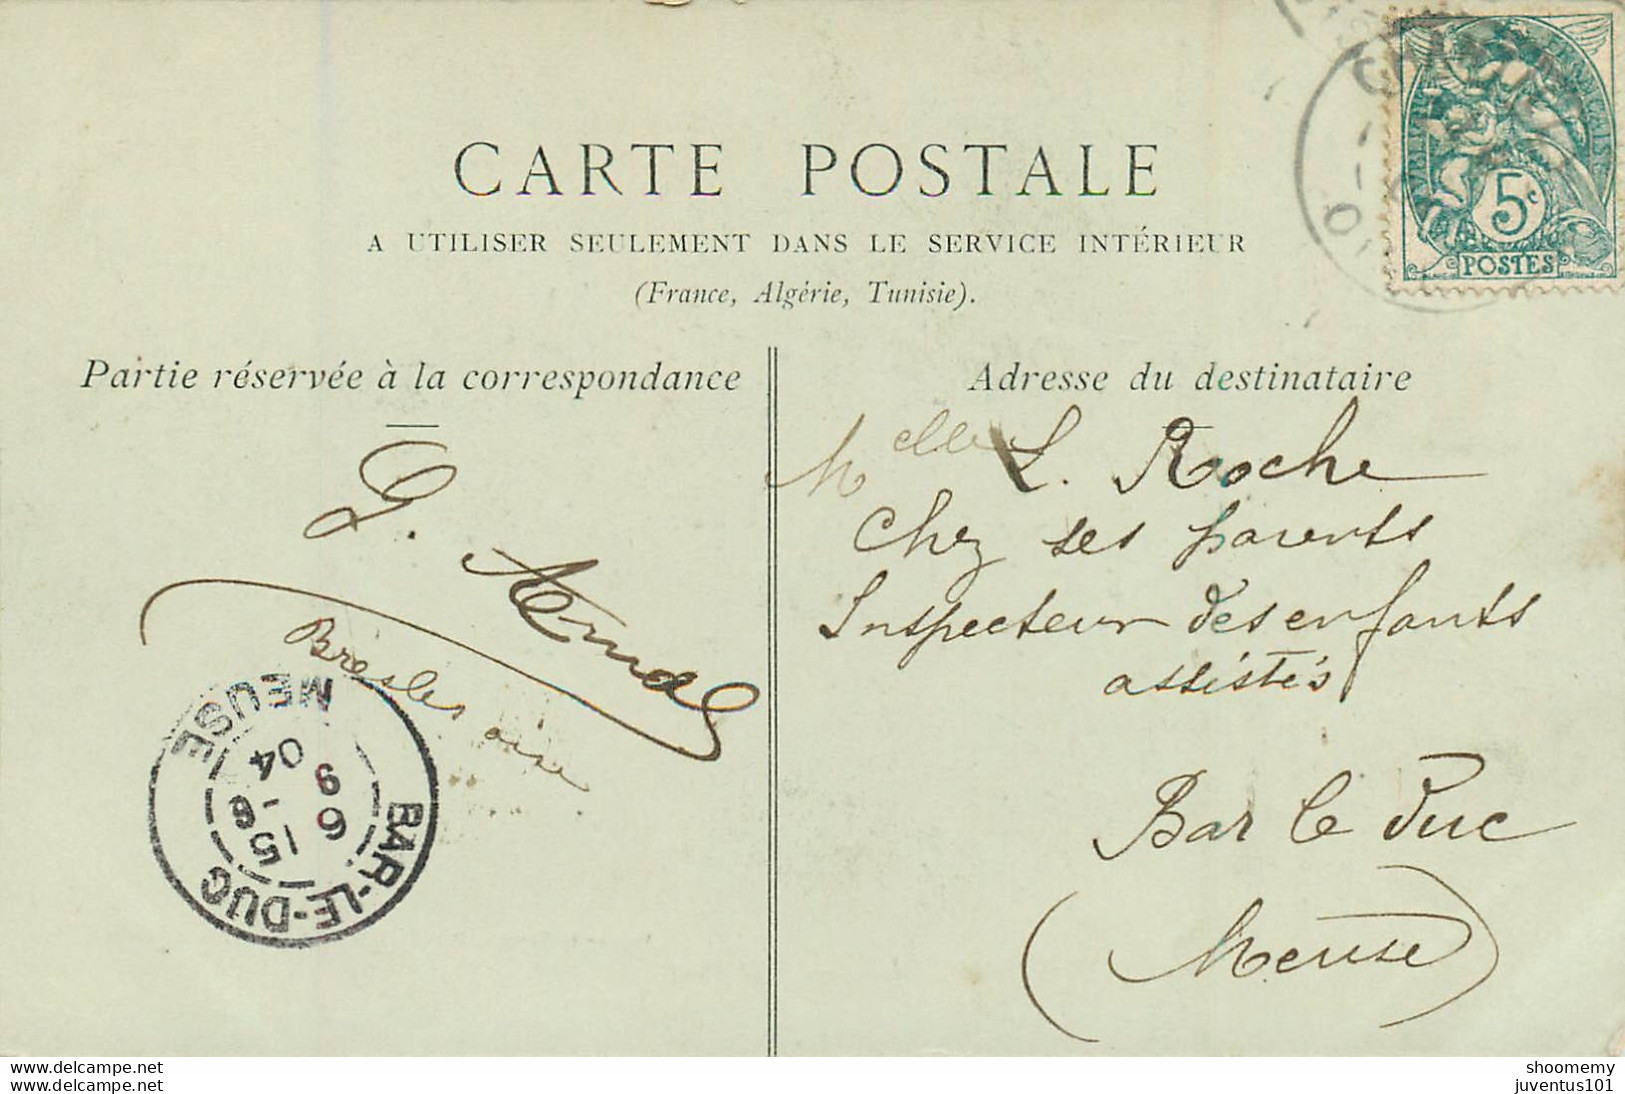 CARTE POSTALE
A UTILISER SEULEMENT DANS LE SERVICE INTÉRIEUR
(France, Algérie, Tunisie).
5c
POSTES
Partie réservée à la correspondance
G.
Bresles oise
BAR-LE-DUC
MEUSE
15-6
6
9
04
Adresse du destinataire
Melle L. Roche
Chez ses parents
Inspecteur des enfants
assistés
Bar le Duc
(Meuse)
shoomemy
juventus101